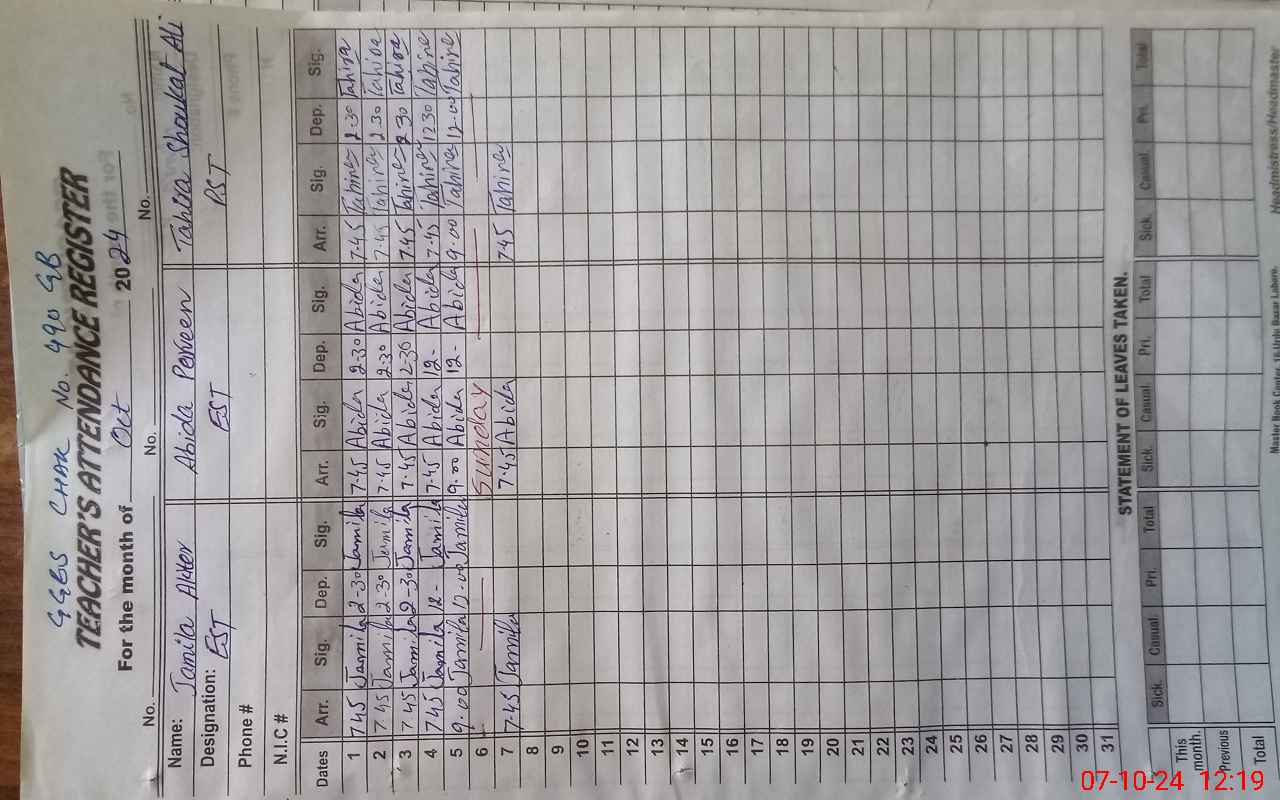 GGES CHAK No. 490 GB
TEACHER'S ATTENDANCE REGISTER
For the month of Oct 2024
No. No. No.
Name: Jamila Akter Abida Perveen Tahira Shoukat Ali
Designation: EST EST PST
Phone #
N.I.C #
Dates Arr. Sig. Dep. Sig. Arr. Sig. Dep. Sig. Arr. Sig. Dep. Sig.
1 7.45 Jamila 2-30 Jamila 7.45 Abida 2.30 Abida 7.45 Tahira 2.30 Tahira
2 7.45 Jamila 2.30 Jamila 7.45 Abida 2.30 Abida 7.45 Tahira 2.30 Tahira
3 7.45 Jamila 2-30 Jamila 7.45 Abida 2.30 Abida 7.45 Tahira 2.30 Tahira
4 7.45 Jamila 12- Jamila 7.45 Abida 12- Abida 7.45 Tahira 12.30 Tahira
5 9.00 Jamila 12.00 Jamila 9.00 Abida 12- Abida 9.00 Tahira 12.00 Tahira
6 Sunday
7 7.45 Jamila 7.45 Abida 7.45 Tahira
8
9
10
11
12
13
14
15
16
17
18
19
20
21
22
23
24
25
26
27
28
29
30
31
STATEMENT OF LEAVES TAKEN.
Sick. Casual. Pri. Total Sick. Casual. Pri. Total Sick. Casual. Pri. Total
This month.
Previous
Total
Master Book Center, Headmistress/Headmaster
07-10-24 12:19